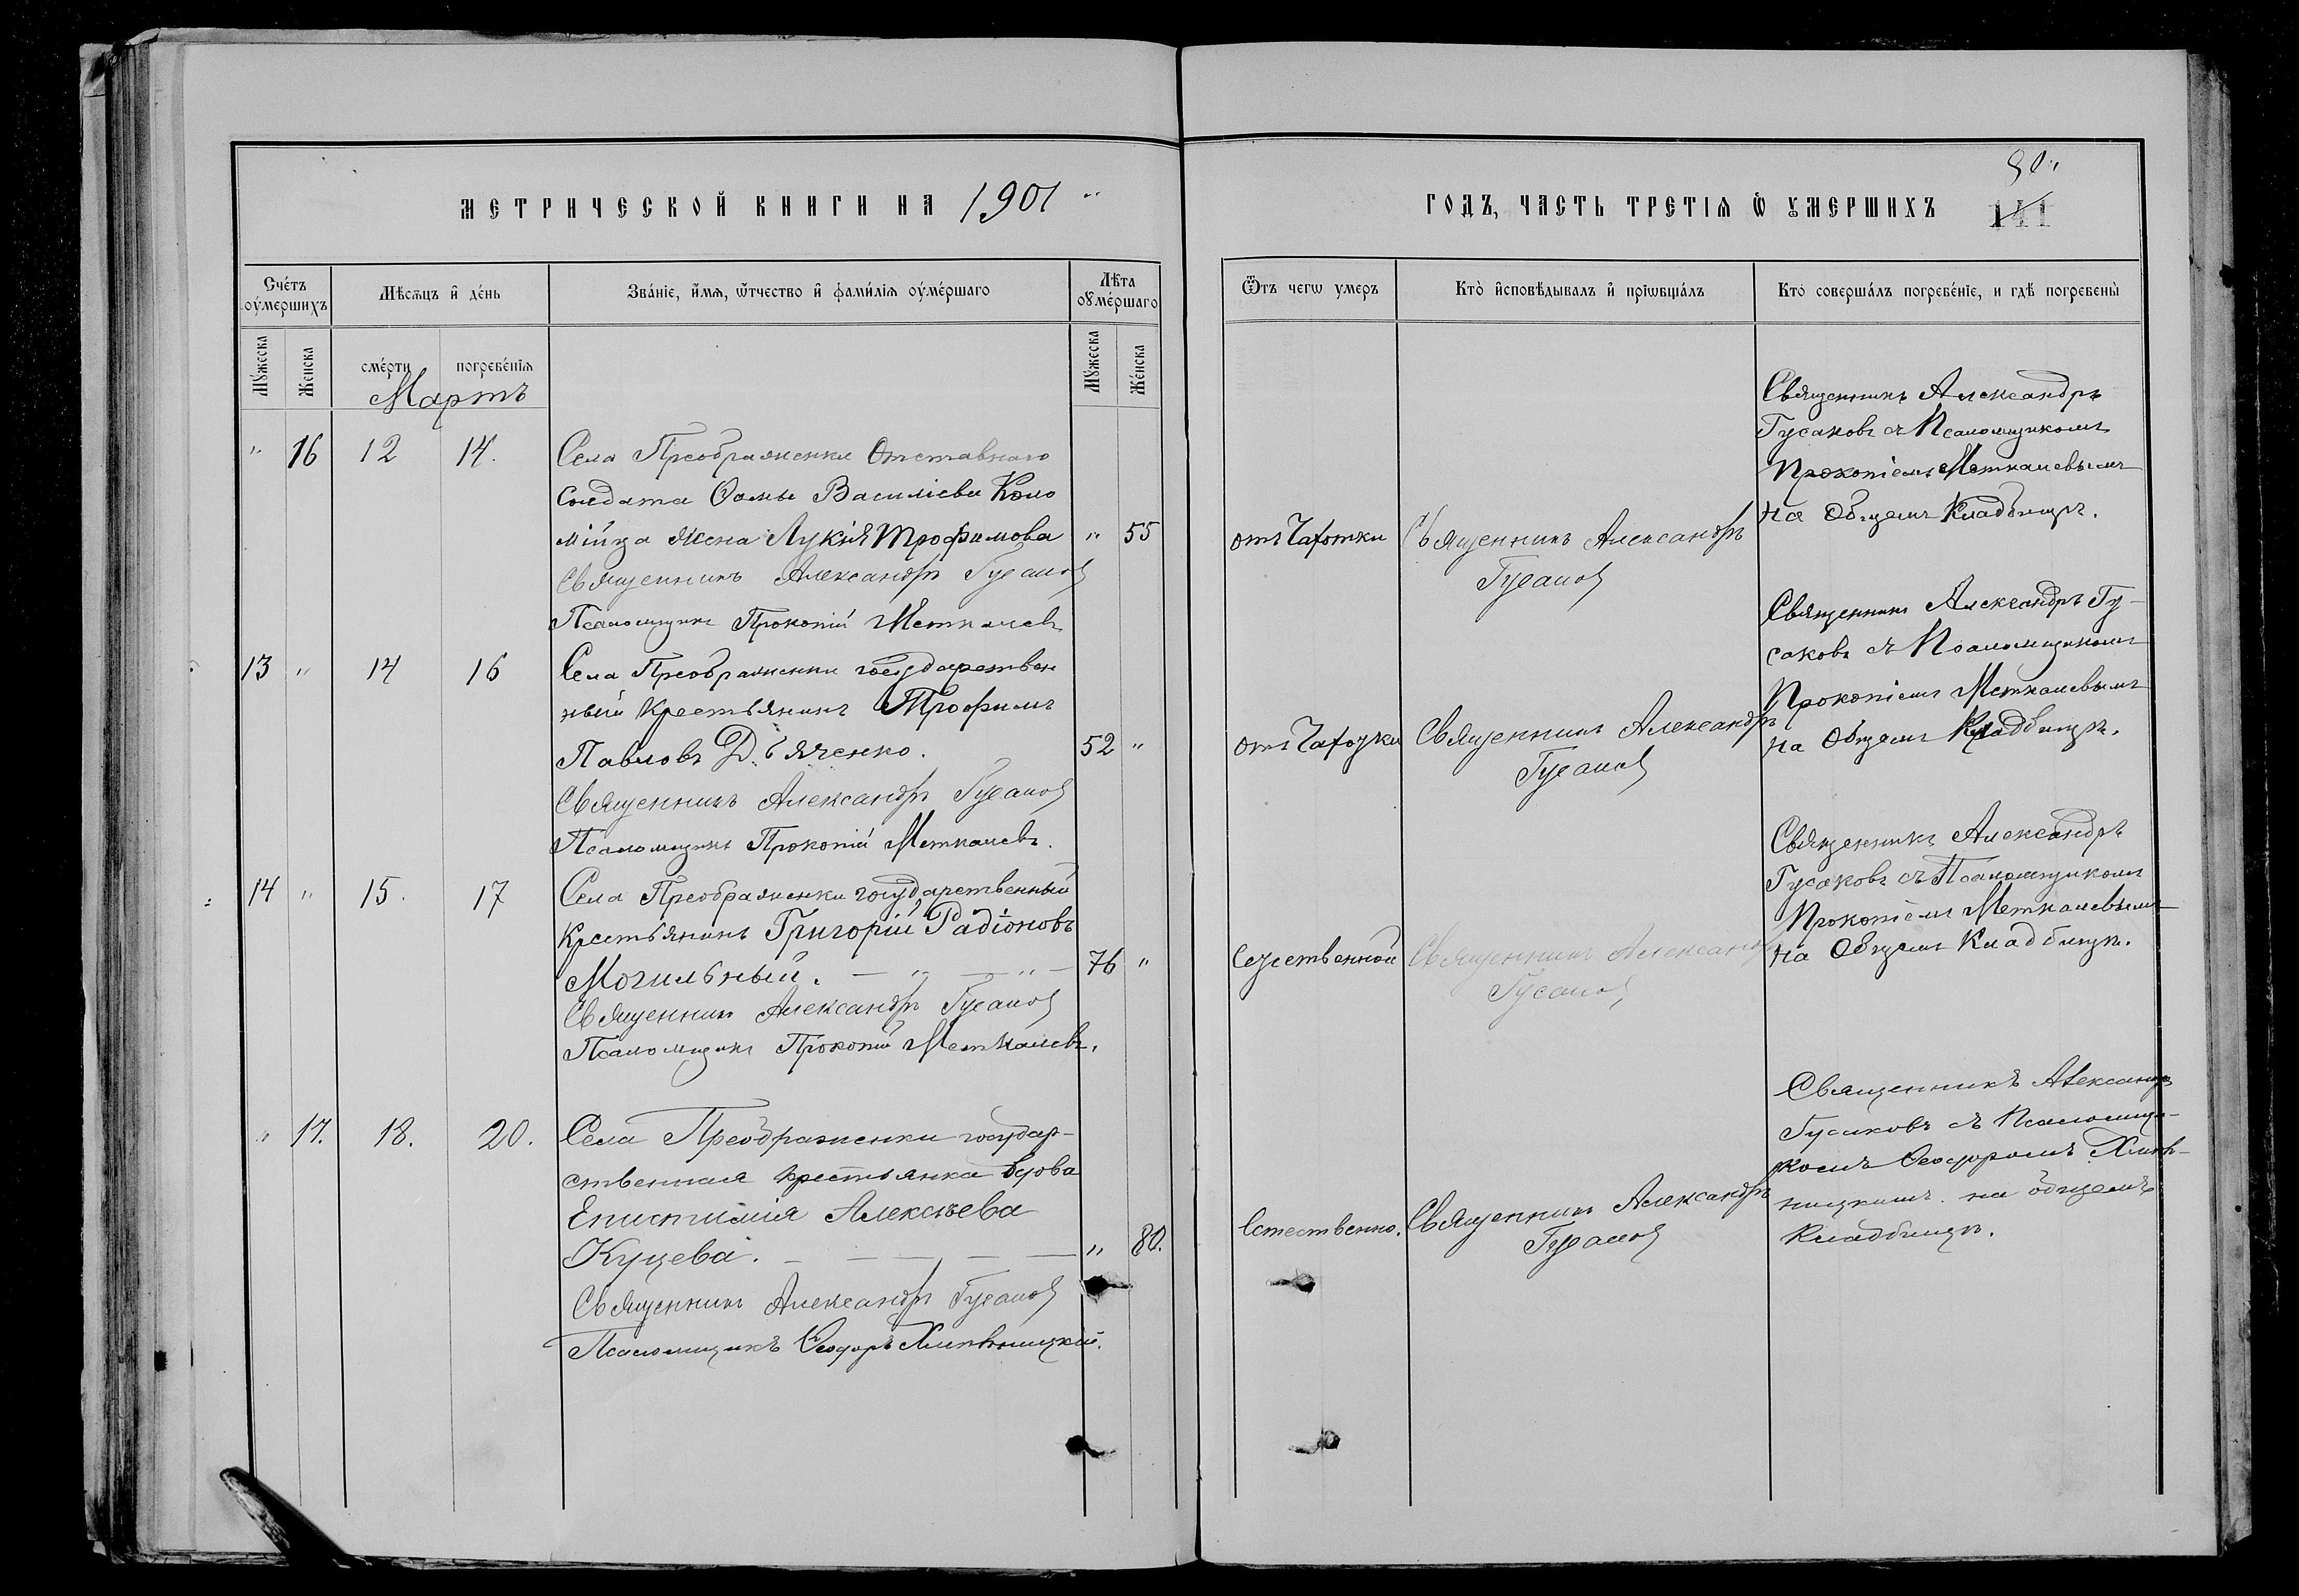 МЕТРИЧЕСКОЙ КНИГИ НА 1901
Счетъ оумершихъ
Мѣсяцъ и день
Званіе, имя, отчество и фамилія оумершаго
Лѣта оумершаго
Мужеска
Женска
смерти
погребенія
Мужеска
Женска
Мартъ
" 16 12 14.
Села Преображенки Отставнаго
солдата Ѳомы Василіева Коло
мійца жена Лукія Трофимова " 55
Священникъ Александръ Гусаковъ
Псаломщикъ Прокопій Меткалевъ
13 " 14 16
Села Преображенки государствен
ный крестьянинъ Трофимъ
Павловъ Дьяченко. 52 "
Священникъ Александръ Гусаковъ
Псаломщикъ Прокопій Меткалевъ.
14 " 15. 17
Села Преображенки государственный
крестьянинъ Григорій Радіоновъ
Могильный. — " — " — 76 "
Священникъ Александръ Гусаковъ
Псаломщикъ Прокопій Меткалевъ.
" 17. 18. 20.
Села Преображенки государ-
ственная крестьянка вдова
Епистимія Алексѣева
Куцева. — — — — " 80.
Священникъ Александръ Гусаковъ
Псаломщикъ Ѳеодоръ
80"
ГОДЪ, ЧАСТЬ ТРЕТІЯ Ѿ УМЕРШИХЪ 141
Ѿтъ чегѡ умеръ
Кто исповѣдывалъ и пріѡбщалъ
Кто совершалъ погребеніе, и гдѣ погребены
отъ Чахотки
Священникъ Александръ
Гусаковъ
Священникъ Александръ
Гусаковъ съ Псаломщикомъ
Прокопіемъ Меткалевымъ
на Общемъ Кладбищѣ.
отъ Чахотки
Священникъ Александръ
Гусаковъ
Священникъ Александръ Гу-
саковъ съ Псаломщикомъ
Прокопіемъ Меткалевымъ
на Общемъ Кладбищѣ.
Священникъ Александръ
Гусаковъ
Священникъ Александръ
Гусаковъ съ Псаломщикомъ
Прокопіемъ Меткалевымъ
на Общемъ Кладбищѣ.
Естественно.
Священникъ Александръ
Гусаковъ
Священникъ Александръ
Гусаковъ съ Псаломщи-
комъ Ѳеодоромъ
на общемъ
Кладбищѣ.